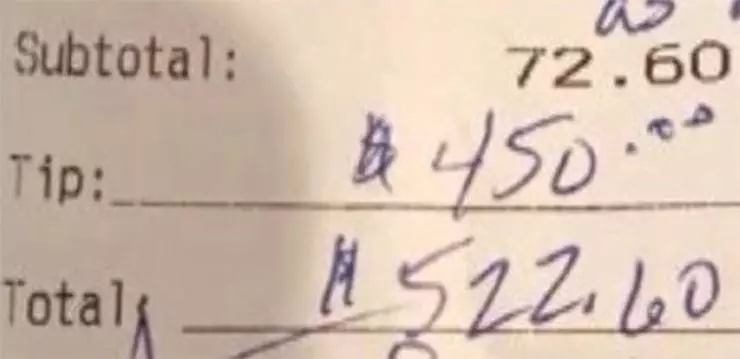 Subtotal: 72.60
Tip: $450.00
Total $522.60